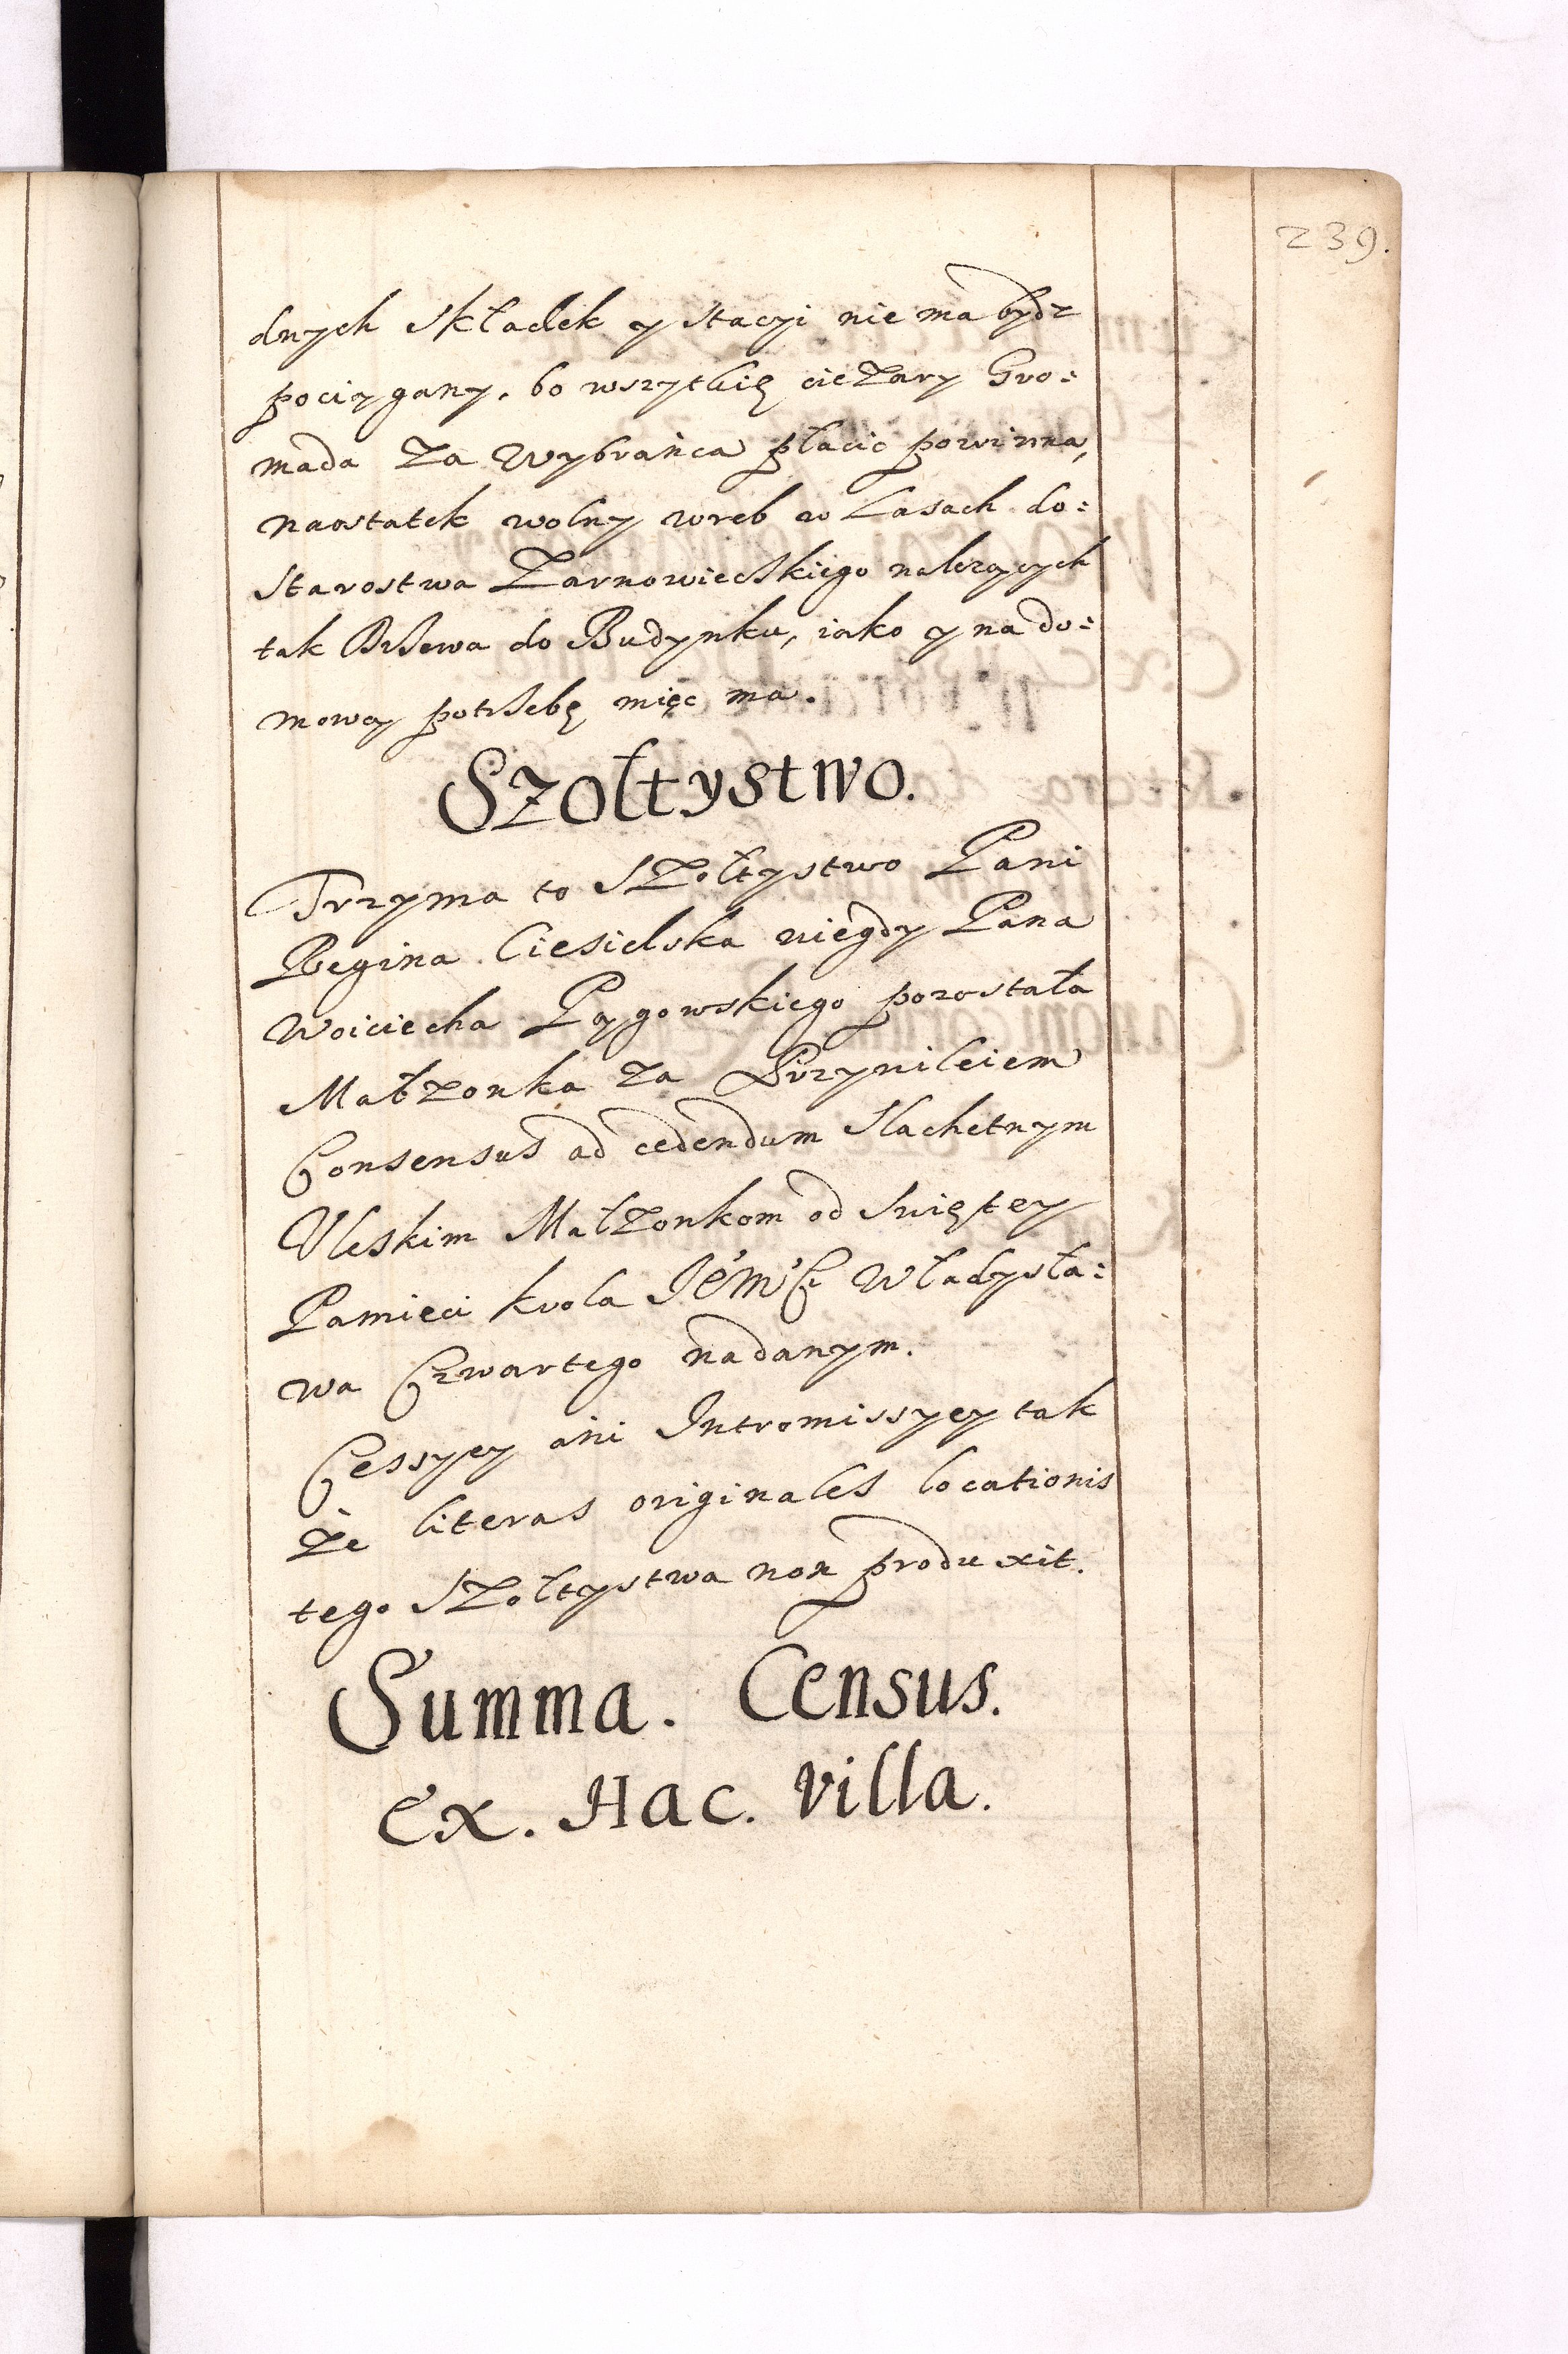 239.
dnych składek y stacyi nie ma bydz
pociągany, bo wszytkię cięzary Gro:
mada za Wybrańca płacic powinna,
naostatek wolny wręb w Lasach do:
Starostwa Zarnowieckiego nalezących
tak Drzewa do Budynku, iako y na do:
mową potrzebę mięc ma.
Szołtystwo.
Trzyma to Szołtystwo Pani
Regina Ciesielska niegdy Pana
Woiciecha Pągowskiego pozostała
Małzonka za Przywileiem
Consensus ad cedendum Slachetnym
Uleskim Małzonkom od Swiętey
Pamięci krola JEMCi Władysła:
wa Czwartego nadanym.
Cessyey ani Intromissyey tak
że literas originales locationis
tego Szołtystwa non produxit.
Summa. Census.
Ex. Hac. villa.